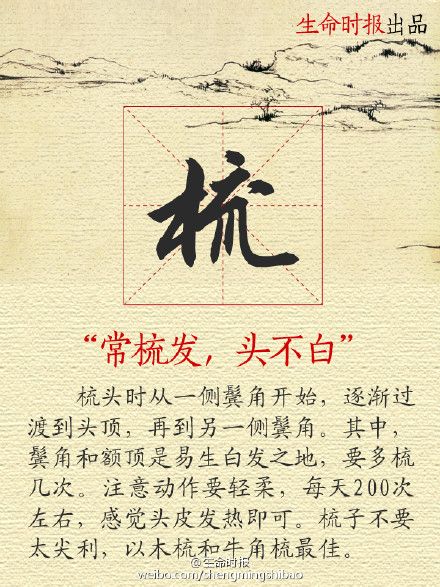 生命时报出品
梳
“常梳发，头不白”
梳头时从一侧鬓角开始，逐渐过
渡到头顶，再到另一侧鬓角。其中，
鬓角和额顶是易生白发之地，要多梳
几次。注意动作要轻柔，每天200次
左右，感觉头皮发热即可。梳子不要
太尖利，以木梳和牛角梳最佳。
@生命时报
weibo.com/shengmingshibao